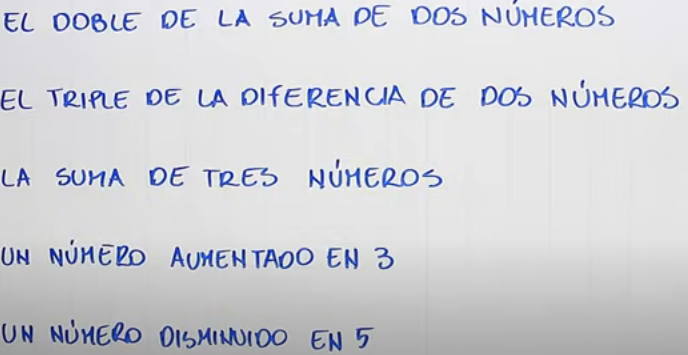 EL DOBLE DE LA SUMA DE DOS NÚMEROS
EL TRIPLE DE LA DIFERENCIA DE DOS NÚMEROS
LA SUMA DE TRES NÚMEROS
UN NÚMERO AUMENTADO EN 3
UN NÚMERO DISMINUIDO EN 5